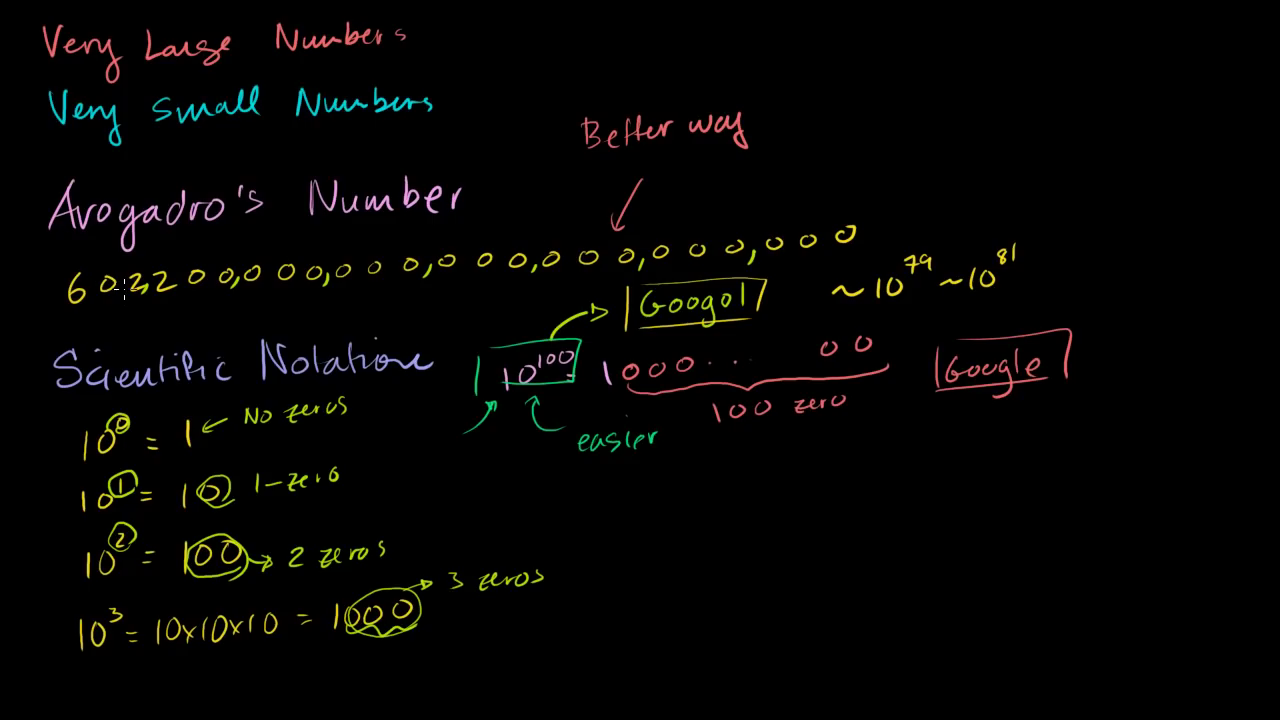 Very Large Numbers
Very Small Numbers
Better way
Avogadro's Number
602,200,000,000,000,000,000,000
Googol
~10^79 ~10^81
Scientific Notation
10^100 = 1000... 00
Google
100 zero
easier
10^0 = 1 No zeros
10^1 = 10 1-zero
10^2 = 100 2 zeros
10^3 = 10x10x10 = 1000 3 zeros